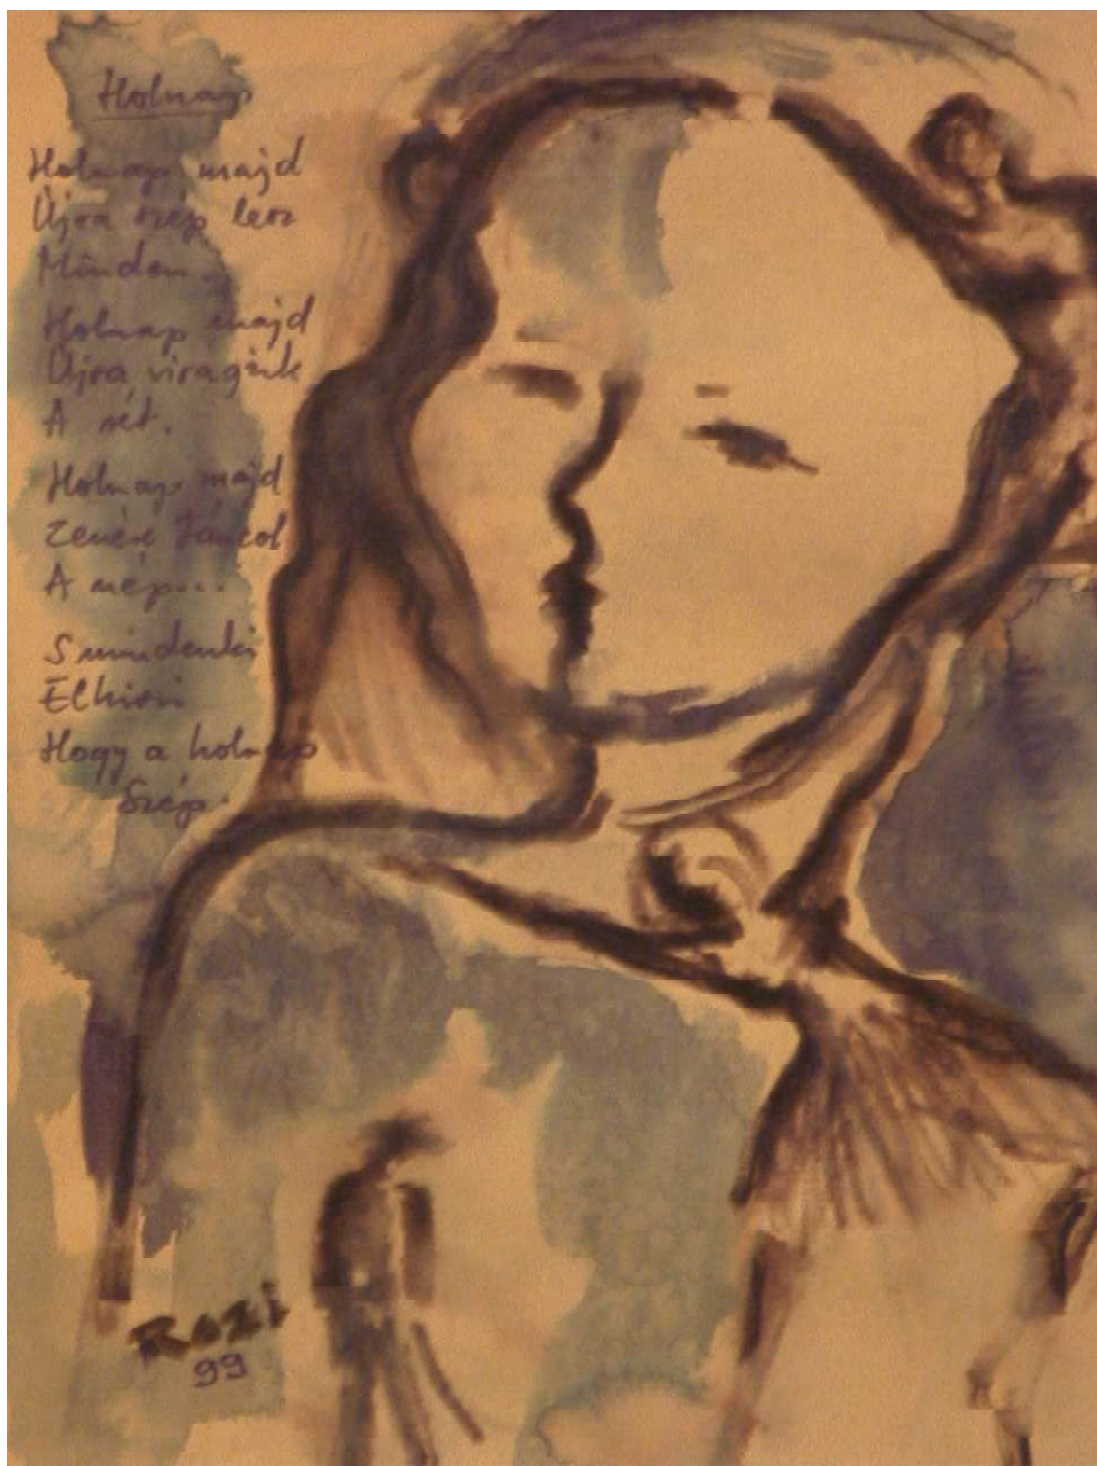 Holnap
Holnap majd
Újra szép lesz
Minden.
Holnap majd
Újra virágzik
A rét.
Holnap majd
Zenére táncol
A nép...
S mindenki
Elhiszi
Hogy a holnap
Szép.
Rozi
99